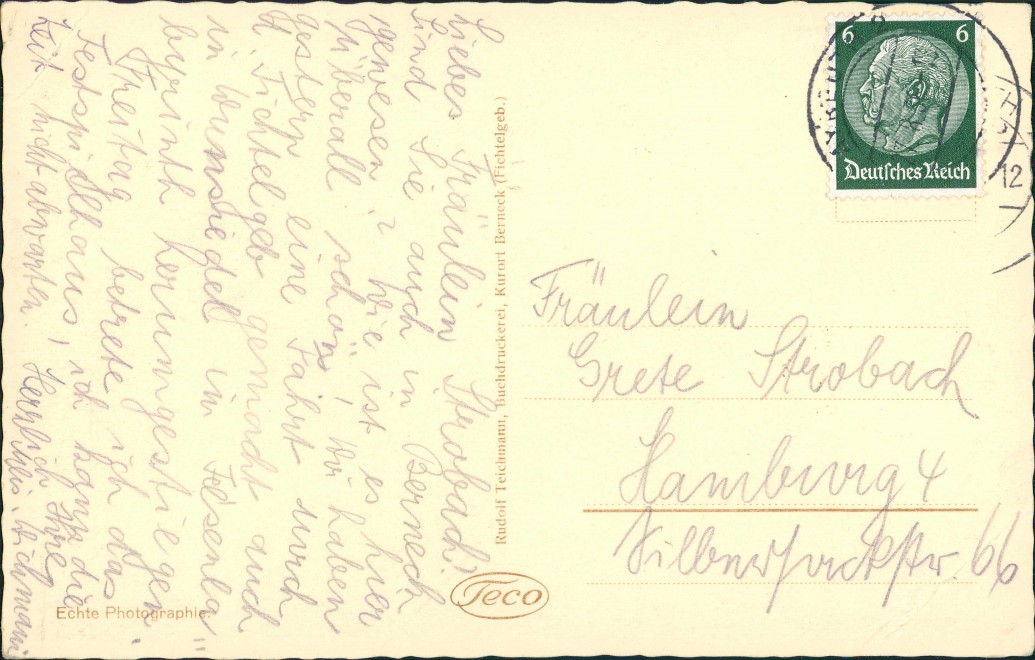 Liebes Fräulein Strobach!
Sind Sie auch in Berneck
gewesen? Wie ist es hier
überall schön, wir haben
gestern eine Fahrt durch
d. Fichtelgeb gemacht auch
in Wunsiedel im Felsenla-
byrinth herumgestiegen.
Freitag betrete ich das
Festspielhaus, ich kann die
Zeit nicht abwarten. Herzlich Ihre
Rudolf Teichmann, Buchdruckerei, Kurort Berneck (Fichtelgeb.)
Echte Photographie.
Teco
6 6
Deutsches Reich
12
Fräulein
Grete Strobach
Hamburg 4
Silbersackstr. 66